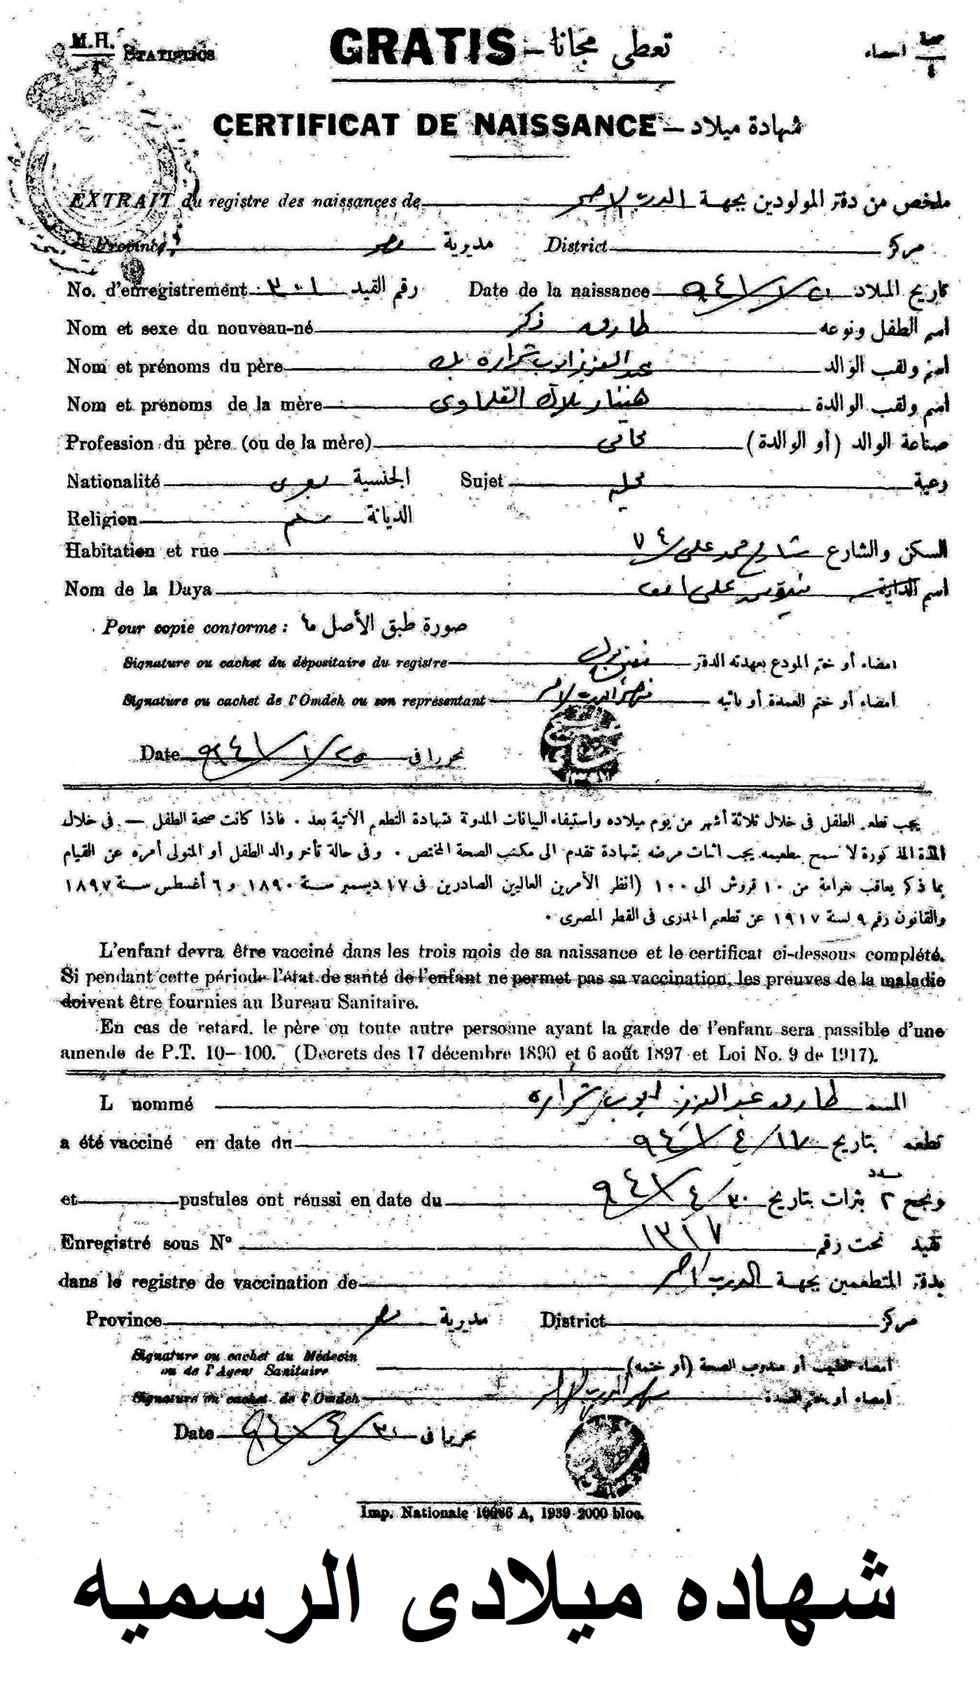 M.H. / 4 STATISTICS GRATIS - تعطى مجانا صحة / ٤ احصاء
CERTIFICAT DE NAISSANCE - شهادة ميلاد
EXTRAIT du registre des naissances de الدرب الاحمر ملخص من دفتر المولودين بجهة
Province مصر مديرية District مركز
No. d'enregistrement ٣٠١ رقم القيد Date de la naissance تاريخ الميلاد
Nom et sexe du nouveau-né طارق ذكر اسم الطفل ونوعه
Nom et prénoms du père عبد العزيز ايوب شراره بك اسم ولقب الوالد
Nom et prénoms de la mère القلماوى اسم ولقب الوالدة
Profession du père (ou de la mère) محامى صناعة الوالد (أو الوالدة)
Nationalité مصرى الجنسية Sujet محليه رعية
Religion مسلم الديانة
Habitation et rue شارع محمد على ٧٤ السكن والشارع
Nom de la Daya اسم الداية
Pour copie conforme : صورة طبق الأصل
Signature ou cachet du dépositaire du registre امضاء أو ختم المودع بعهدته الدفتر
Signature ou cachet de l'Omdeh ou son représentant الدرب الاحمر امضاء أو ختم العمدة أو نائبه
Date ٩٤١/١/٢٥ تحريرا فى
يجب تطعيم الطفل فى خلال ثلاثة أشهر من يوم ميلاده واستيفاء البيانات المدونة بشهادة التطعيم الآتية بعد . فاذا كانت صحة الطفل — فى خلال
المدة المذكورة لا تسمح بتطعيمه يجب اثبات مرضه بشهادة تقدم الى مكتب الصحة المختص . وفى حالة تأخر والد الطفل أو المتولى أمره عن القيام
بما ذكر يعاقب بغرامة من ١٠ قروش الى ١٠٠ (انظر الأمرين العاليين الصادرين فى ١٧ ديسمبر سنة ١٨٩٠ و ٦ أغسطس سنة ١٨٩٧
والقانون رقم ٩ لسنة ١٩١٧ عن تطعيم الجدرى فى القطر المصرى .
L'enfant devra être vacciné dans les trois mois de sa naissance et le certificat ci-dessous complété.
Si pendant cette période l'état de santé de l'enfant ne permet pas sa vaccination, les preuves de la maladie
doivent être fournies au Bureau Sanitaire.
En cas de retard, le père ou toute autre personne ayant la garde de l'enfant sera passible d'une
amende de P.T. 10–100. (Decrets des 17 décembre 1890 et 6 août 1897 et Loi No. 9 de 1917).
L nommé طارق عبد العزيز ايوب شراره المسمى
a été vacciné en date du ٩٤١/٤/١٧ تطعم بتاريخ
et pustules ont réussi en date du ٩٤١/٤/٣٠ ونجح ٢ بثرات بتاريخ
Enregistré sous N° ١٣١٧ تقيد تحت رقم
dans le registre de vaccination de الدرب الاحمر بدفتر المتطعمين بجهة
Province مصر مديرية District مركز
Signature ou cachet du Médecin
ou de l'Agent Sanitaire امضاء الطبيب أو مندوب الصحة (أو ختمه)
Signature ou cachet de l'Omdeh الدرب الاحمر امضاء أو ختم العمدة
Date ٩٤١/٤/٣٠ تحريرا فى
Imp. Nationale A, 1939-2000 bloc.
شهاده ميلادى الرسميه